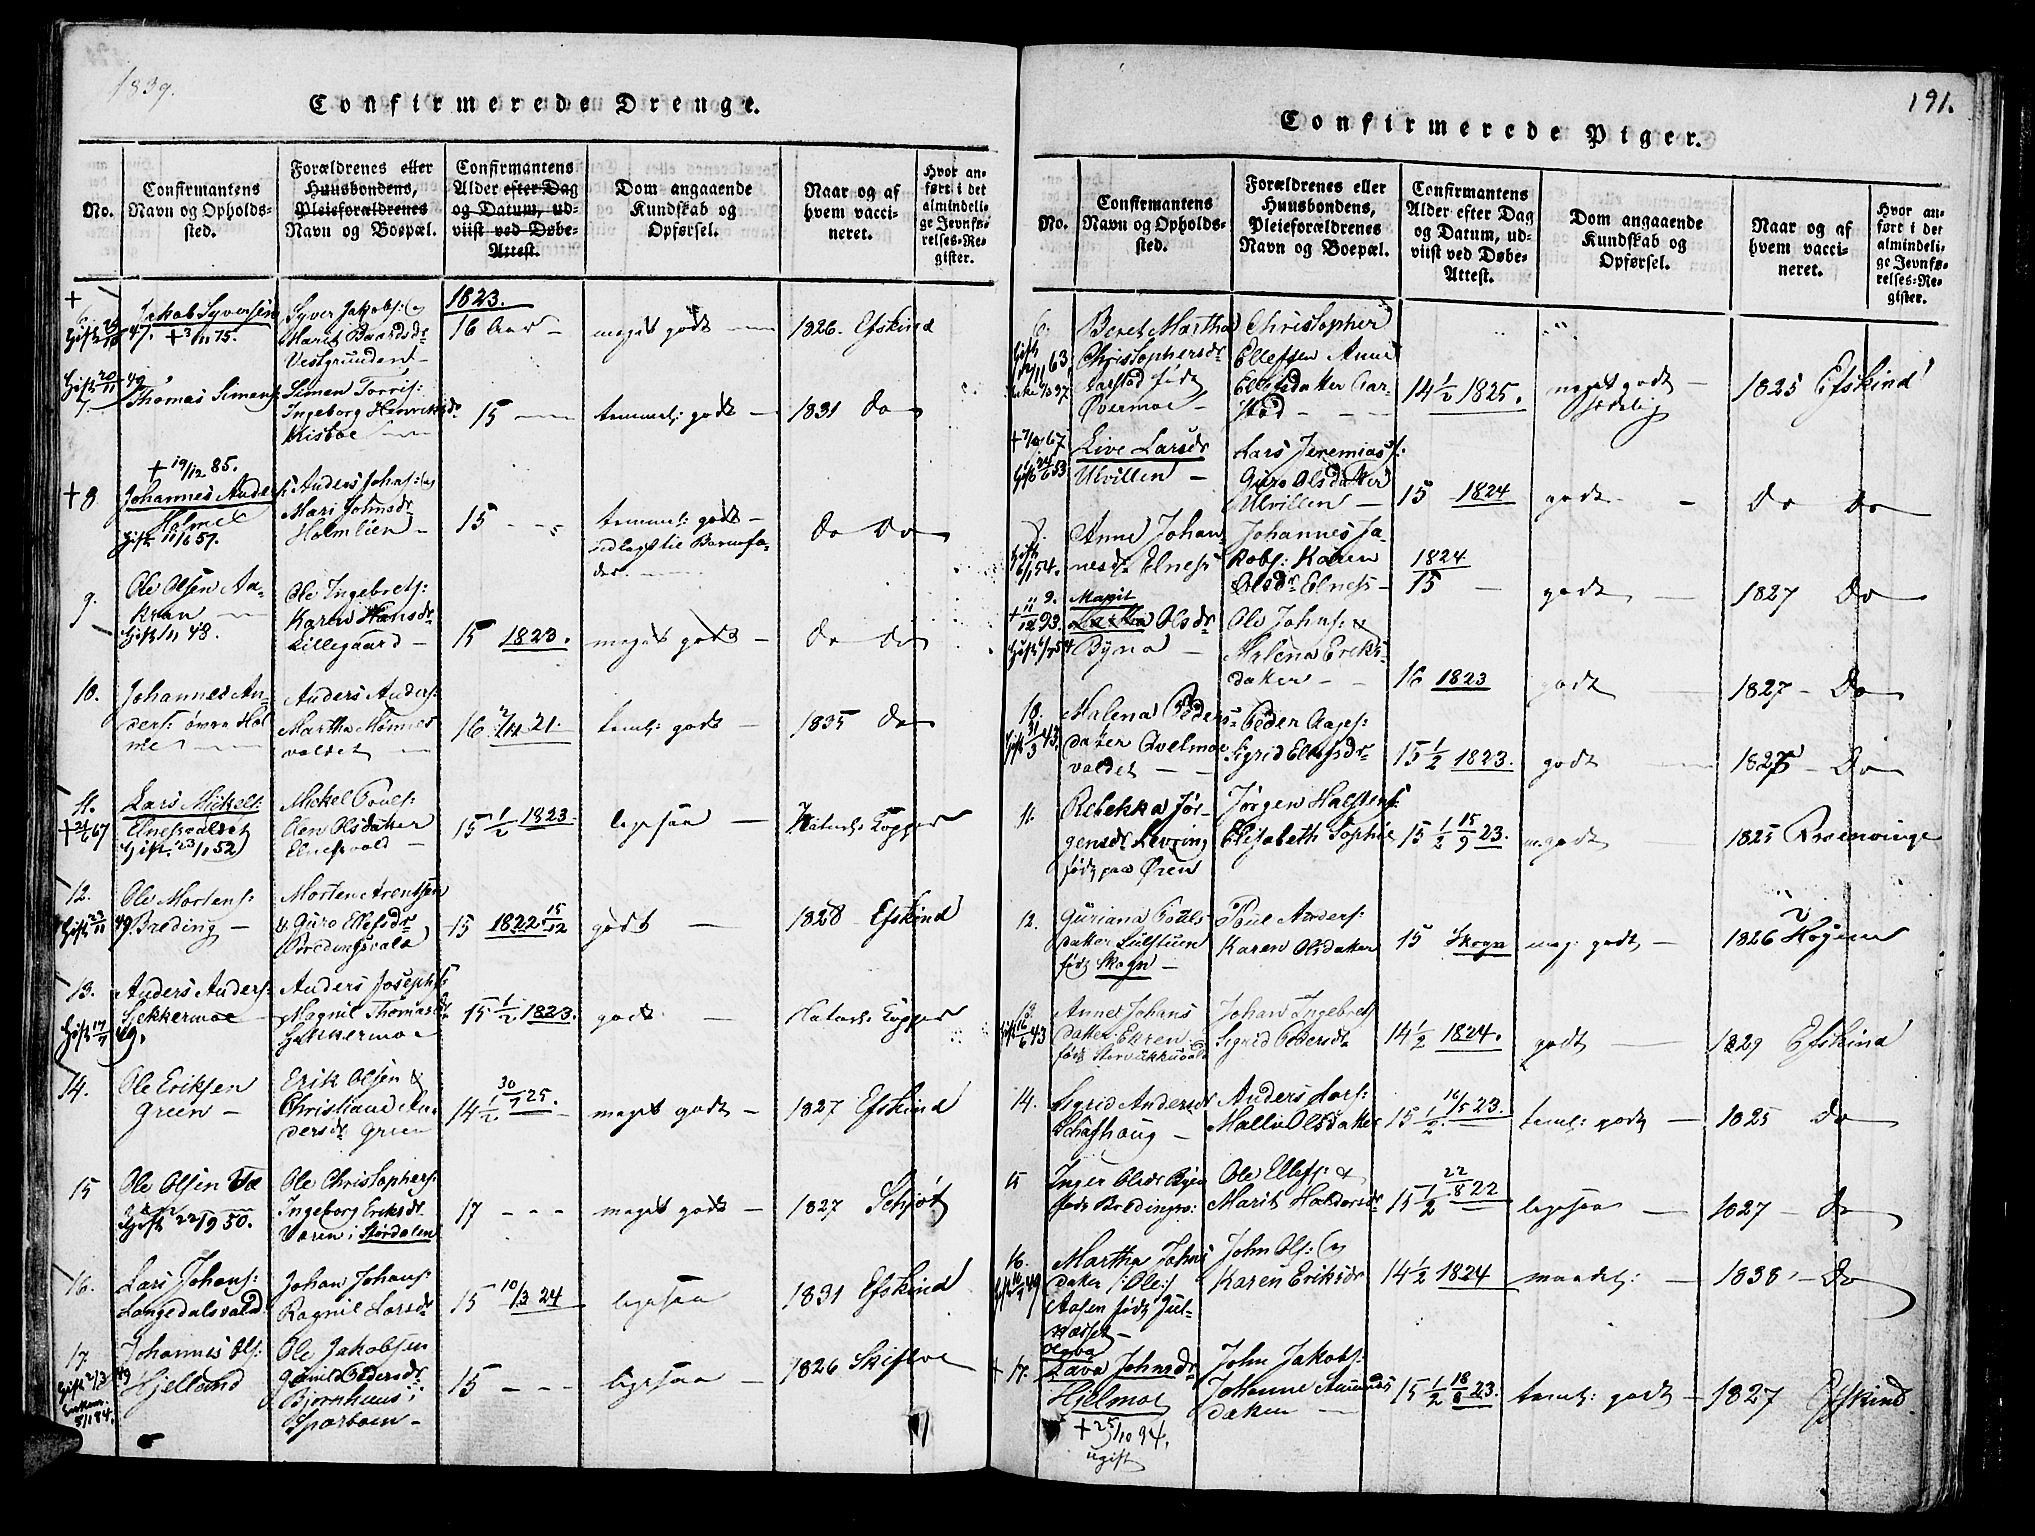 1839.
Confirmerede Drenge.
No.
Confirmantens
Navn og Opholds-
sted.
Forældrenes eller
Huusbondens,
Pleieforældrenes
Navn og Boepæl.
Confirmantens
Alder efter Dag
og Datum, ud-
viist ved Døbe-
Attest.
Dom angaaende
Kundskab og
Opførsel.
Naar og af
hvem vacci-
neret.
Hvor an-
ført i det
almindeli-
ge Jevnfø-
relses-Re-
gister.
+
6.
Jakob Syversen
+ 3/11 75.
Syver Jakobs: og
Marit Baardsdr
Vestgrunden
1823.
16 Aar
meget godt
1826. Efskind
Gift 20/11 49
7
Thomas Simens:
Simen Torris:
Ingeborg Henriksdr
15
temmel: godt
1831 do
+ 8
+ 19/12 85.
Johannes Anders:
Holme
Gift 11/6 57.
Anders Johns: og
Mari Johnsdr
Holmlien
15
temmel: godt
Do Do
9.
Ole Olsen Aa-
kran
Gift 1/11 48.
Ole Ingebrets:
Karen Hansdr
Lillegaard
15 1823.
meget godt
Do Do
10.
Johannes An-
ders: øvre Hol-
me
Anders Anders:
Martha
valdet
16 2/11 21.
teml: godt
1835 Do
11.
+ 21/6 67
Lars Mickels:
Elnesvaldet
Gift 23/11 52
Mickel Pouls:
Elen Olsdatter
Elnesvald
15 1/2 1823.
ligesaa
Naturl: Kopper
12.
Gift 23/11 49
Ole Mortens:
Breding
Morten Arentsen
& Guro Ellefsdr
Bredingsvald
15 1822 15/12
godt
1828 Efskind
13.
Gift 17/7 49.
Anders Anders:
Sekkermoe
Anders Josephs:
Magnil Thomasdr
Sekkermoe
15 1/2 1823.
godt
Naturl: Kopper
14.
Ole Eriksen
Green
Erik Olsen &
Christiane An-
dersdr Green
14 1/2 30/7 25.
meget godt
1827 Efskind
15
Ole Olsen Væ
Gift 22/9 50.
Ole Christophers:
Ingeborg Eriksdr
Væren i Størdalen
17
meget godt
1827 Schjøt
16.
Lars Johans:
Langedalsvald
Johan Johans:
Ragnil Larsdr
15 10/3 24
ligesaa
1831 Efskind
17.
Johannes Ols:
Hjelland
Ole Jakobsen
Gunild Pedersdr
Bjørnhuus i
Sparboen
15
ligesaa
1826
191.
Confirmerede Piger.
No.
Confirmantens
Navn og Opholds-
sted.
Forældrenes eller
Huusbondens,
Pleieforældrenes
Navn og Boepæl.
Confirmantens
Alder efter Dag
og Datum, ud-
viist ved Døbe-
Attest.
Dom angaaende
Kundskab og
Opførsel.
Naar og af
hvem vacci-
neret.
Hvor an-
ført i det
almindeli-
ge Jevnfø-
relses-Re-
gister.
6.
Beret Martha
Christophersdr
Aarstad født
Øvermoe
Christopher
Ellefsen Anne
Ellefsdatter Aar-
stad
14 1/2 1825.
meget godt
sædelig
1825 Efskind
Live Larsdr
Ulvillen
Lars Jeremias:
Guro Olsdatter
Ulvillen
15 1824
godt
Do Do
Anne Johan-
nesdr Elnes
Johannes Ja-
kobs: Karen
Olsdr Elnes
1824
15
godt
1827 Do
9.
Marit
Olsdr
Byna
Ole Johns: &
Malena Eriks-
datter
16 1823
godt
1827 Do
10.
Gift 31/3 43.
Malena Peders-
datter Qvelmoe
valdet
Peder Aages:
Sigrid Ellefsdr
15 1/2 1823.
godt
1825 Do
11.
Rebekka Jør-
gensdr Levring
født paa Øren
Jørgen Halstens:
Elisabeth Sophie
15 1/2 15/9 23.
m. godt
1825 Rosenvinge
12.
Guriana Pouls
datter Lulstuen
født Skogn
Poul Anders:
Karen Olsdatter
15 Skogn
meg: godt
1826
13.
Gift 16/6 43
Anne Johans
datter Ekren
Johan Ingebrets
Sigrid Pedersdr
14 1/2 1824.
godt
1829 Efskind
14.
Sigrid Andersdr
Schafhoug
Anders Lars:
Malli Olsdatter
15 1/2 16/5 23.
teml: godt
1825 do
15
Inger Olsdr Byen
født Bredings:
Ole Ellefs: &
Marit Haldorsdr
15 1/2 22/8 22
ligesaa
1827 Do
16.
Martha Johns
datter /:Ole:/
Aasen født Jul-
næsset
John Ols: og
Karen Eriksdr
14 1/2 1824
maadel:
1838 Do
+ 17.
Olava
Lava Johnsdr
Hjelmoe
+ 25/10 94.
ugift
John Jakobs:
Johanne Asmunds
datter
15 1/2 18/8 23.
teml: godt
1827 Efskind